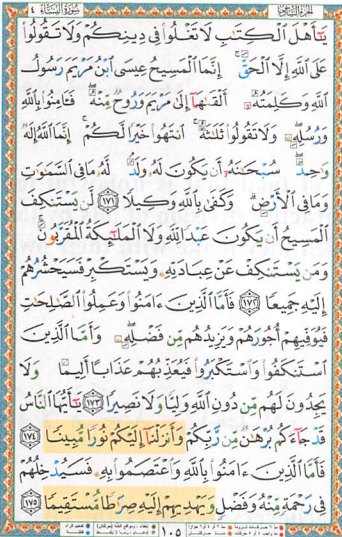 سورة النساء ٤
يَـٰٓأَهْلَ ٱلْكِتَـٰبِ لَا تَغْلُوا۟ فِى دِينِكُمْ وَلَا تَقُولُوا۟
عَلَى ٱللَّهِ إِلَّا ٱلْحَقَّ ۚ إِنَّمَا ٱلْمَسِيحُ عِيسَى ٱبْنُ مَرْيَمَ رَسُولُ
ٱللَّهِ وَكَلِمَتُهُۥٓ أَلْقَىٰهَآ إِلَىٰ مَرْيَمَ وَرُوحٌ مِّنْهُ ۖ فَـَٔامِنُوا۟ بِٱللَّهِ
وَرُسُلِهِۦ ۖ وَلَا تَقُولُوا۟ ثَلَـٰثَةٌ ۚ ٱنتَهُوا۟ خَيْرًا لَّكُمْ ۚ إِنَّمَا ٱللَّهُ إِلَـٰهٌ
وَٰحِدٌ ۖ سُبْحَـٰنَهُۥٓ أَن يَكُونَ لَهُۥ وَلَدٌ ۘ لَّهُۥ مَا فِى ٱلسَّمَـٰوَٰتِ
وَمَا فِى ٱلْأَرْضِ ۗ وَكَفَىٰ بِٱللَّهِ وَكِيلًا ١٧١ لَّن يَسْتَنكِفَ
ٱلْمَسِيحُ أَن يَكُونَ عَبْدًا لِّلَّهِ وَلَا ٱلْمَلَـٰٓئِكَةُ ٱلْمُقَرَّبُونَ ۚ
وَمَن يَسْتَنكِفْ عَنْ عِبَادَتِهِۦ وَيَسْتَكْبِرْ فَسَيَحْشُرُهُمْ
إِلَيْهِ جَمِيعًا ١٧٢ فَأَمَّا ٱلَّذِينَ ءَامَنُوا۟ وَعَمِلُوا۟ ٱلصَّـٰلِحَـٰتِ
فَيُوَفِّيهِمْ أُجُورَهُمْ وَيَزِيدُهُم مِّن فَضْلِهِۦ ۖ وَأَمَّا ٱلَّذِينَ
ٱسْتَنكَفُوا۟ وَٱسْتَكْبَرُوا۟ فَيُعَذِّبُهُمْ عَذَابًا أَلِيمًا وَلَا
يَجِدُونَ لَهُم مِّن دُونِ ٱللَّهِ وَلِيًّا وَلَا نَصِيرًا ١٧٣ يَـٰٓأَيُّهَا ٱلنَّاسُ
قَدْ جَآءَكُم بُرْهَـٰنٌ مِّن رَّبِّكُمْ وَأَنزَلْنَآ إِلَيْكُمْ نُورًا مُّبِينًا ١٧٤
فَأَمَّا ٱلَّذِينَ ءَامَنُوا۟ بِٱللَّهِ وَٱعْتَصَمُوا۟ بِهِۦ فَسَيُدْخِلُهُمْ
فِى رَحْمَةٍ مِّنْهُ وَفَضْلٍ وَيَهْدِيهِمْ إِلَيْهِ صِرَٰطًا مُّسْتَقِيمًا ١٧٥
١٠٥